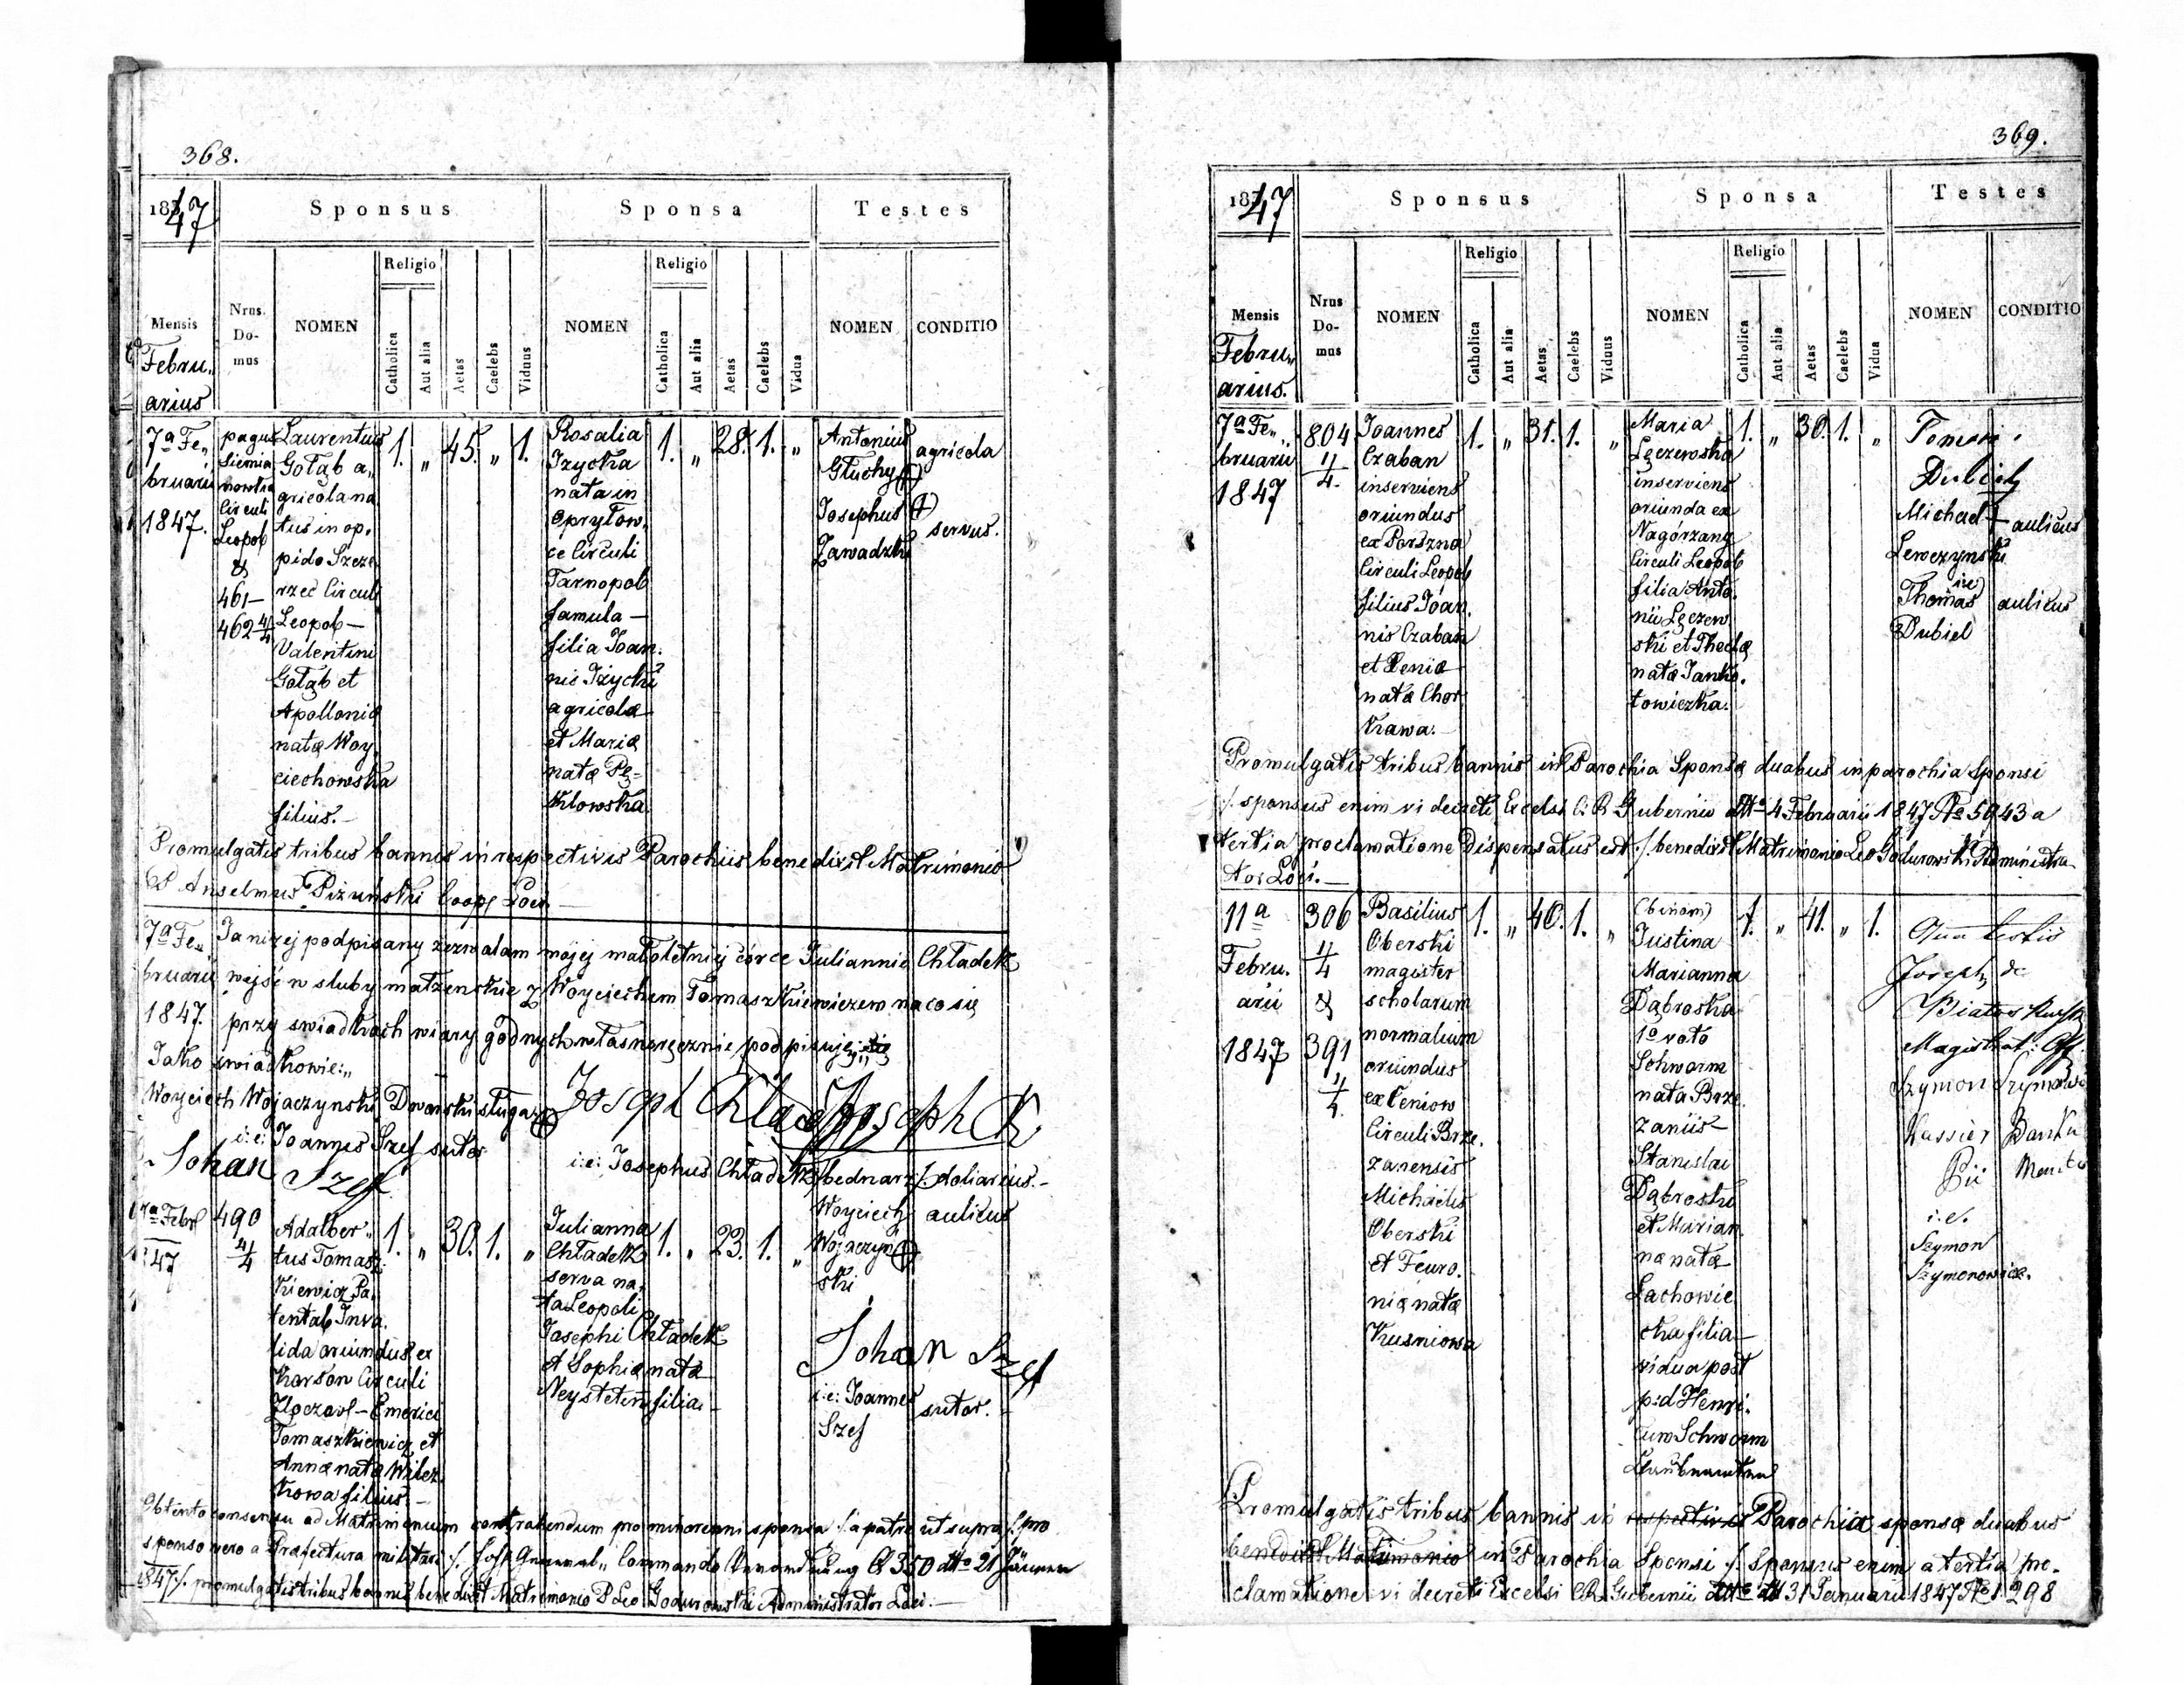 368.
1847
Sponsus
Sponsa
Testes
Mensis
Febru„
arius
Nrus.
Do-
mus
NOMEN
Religio
Catholica
Aut alia
Aetas
Caelebs
Viduus
NOMEN
Religio
Catholica
Aut alia
Aetas
Caelebs
Vidua
NOMEN
CONDITIO
7a Fe„
bruarii
1847.
pagus
Siemia
nowka
Circuli
Leopol
&
461—
462 4/4
Laurentius
Gołąb a„
gricola na
tus in op.
pido Szcze
rzec Circuli
Leopol—
Valentini
Gołąb et
Apolloniæ
natæ Woy
ciechowska
filius.—
1. „ 45. „ 1.
Rosalia
Izycka
nata in
Opryłow
ce Circuli
Tarnopol
famula—
filia Joan.
nis Izycki
agricolæ
et Mariæ
natæ Pę=
kłowska
1. „ 28. 1. „
Antonius
Głuchy
Josephus
Zawadzki
agricola
servus.
Promulgatis tribus bannis in respectivis Parochiis benedixit Matrimonio
P Anselmus Piżuński Coop Loci
7a Fe„
bruarii
1847.
Ja niżej podpisany zezwalam mojej małoletniej córce Juliannie Chładek
wejść w sluby małzenskie z Woyciechem Tomaszkiewiczem na co się
przy swiadkach wiary godnych własnoręcznie podpisuję
Jako świadkowie:„
Woyciech Wojaczynski Dworski sługa
i:e: Joannes Szef sutor
Johan Szef
Joseph Chladek
i:e: Josephus Chładek /:bednarz:/ doliarius.—
7a Febr
1847
490
4/4
Adalber„
tus Tomasz
kiewicz Pa
tental Inva
lida oriundus ex
Korson Circuli
Złoczow— Emerici
Tomaszkiewicz et
Annæ natæ Wilcz
kowa filius.—
1. „ 30. 1. „
Julianna
Chładek
serva na„
ta Leopoli
Josephi Chładek
et Sophiæ natæ
Neysteten filia.—
1. „ 23. 1. „
Woyciech
Wojaczyń
ski
aulicus
Johan Szef
i:e: Joannes
Szef
sutor.
Obtento consensu ad Matrimonium contrahendum pro minorenni sponsa /:a patre ut supra:/ pro
sponso vero a Præfectura militari /: General„ Commando Verordnung 350 dtto 21 Jänner
1847:/ promulgatis tribus bannis benedixit Matrimonio P Leo Godurowski Administrator Loci.—
369.
1847
Sponsus
Sponsa
Testes
Mensis
Febru„
arius.
Nrus
Do-
mus
NOMEN
Religio
Catholica
Aut alia
Aetas
Caelebs
Viduus
NOMEN
Religio
Catholica
Aut alia
Aetas
Caelebs
Vidua
NOMEN
CONDITIO
7a Fe„
bruarii
1847
804
4/4.
Joannes
Czaban
inserviens
oriundus
ex Porszna
Circuli Leopol
filius Joan.
nis Czaban
et Xeniæ
natæ Chor
kawa.—
1. „ 31. 1. „
Maria
Łęczewska
inserviens
oriunda ex
Nagórzany
Circuli Leopol
filia Anto.
nii Łęczew
ski et Theclæ
natæ Janko.
towiczka.
1. „ 30. 1. „
Dubiel
Michael
Lewczynski
aulicus
i:e:
Thomas
Dubiel
aulicus
Promulgatis tribus bannis in Parochia Sponsæ duabus in parochia Sponsi
/: sponsus enim vi decreti Excelsi C:R Gubernii dtto 4 Februarii 1847 No 5943 a
tertia proclamatione Dispensatus est :/ benedixit Matrimonio Leo Godurowski Administra
tor Loci.—
11a
Febru.
arii
1847
306
4/4
&
391
4/4.
Basilius
Oberski
magister
scholarum
normalium
oriundus
ex Ceniow
Circuli Brze.
zanensis
Michaelis
Oberski
et Feuro.
niæ natæ
Kusniowa
1. „ 40. 1. „
(binom)
Justina
Marianna
Dąbroska
1o voto
Schwarm
nata Brze.
zaniis—
Stanislai
Dąbroski
et Marian.
næ natæ
Lachowic
cka filia—
vidua post
p:d Henri.
cum Schwarm
1. „ 41. „ 1.
Joseph de
Magistrat:
Szymon Szymonowicz
Kassier Banku
Pii
i.e.
Szymon
Szymonowicz.
Promulgatis tribus bannis in respectivis Parochia sponsæ duabus
benedixit Matrimonio in Parochia Sponsi /: Sponsus enim a tertia pro.
clamatione vi decreti Excelsi C.R. Gubernii dtto 31 Januarii 1847 No 1298